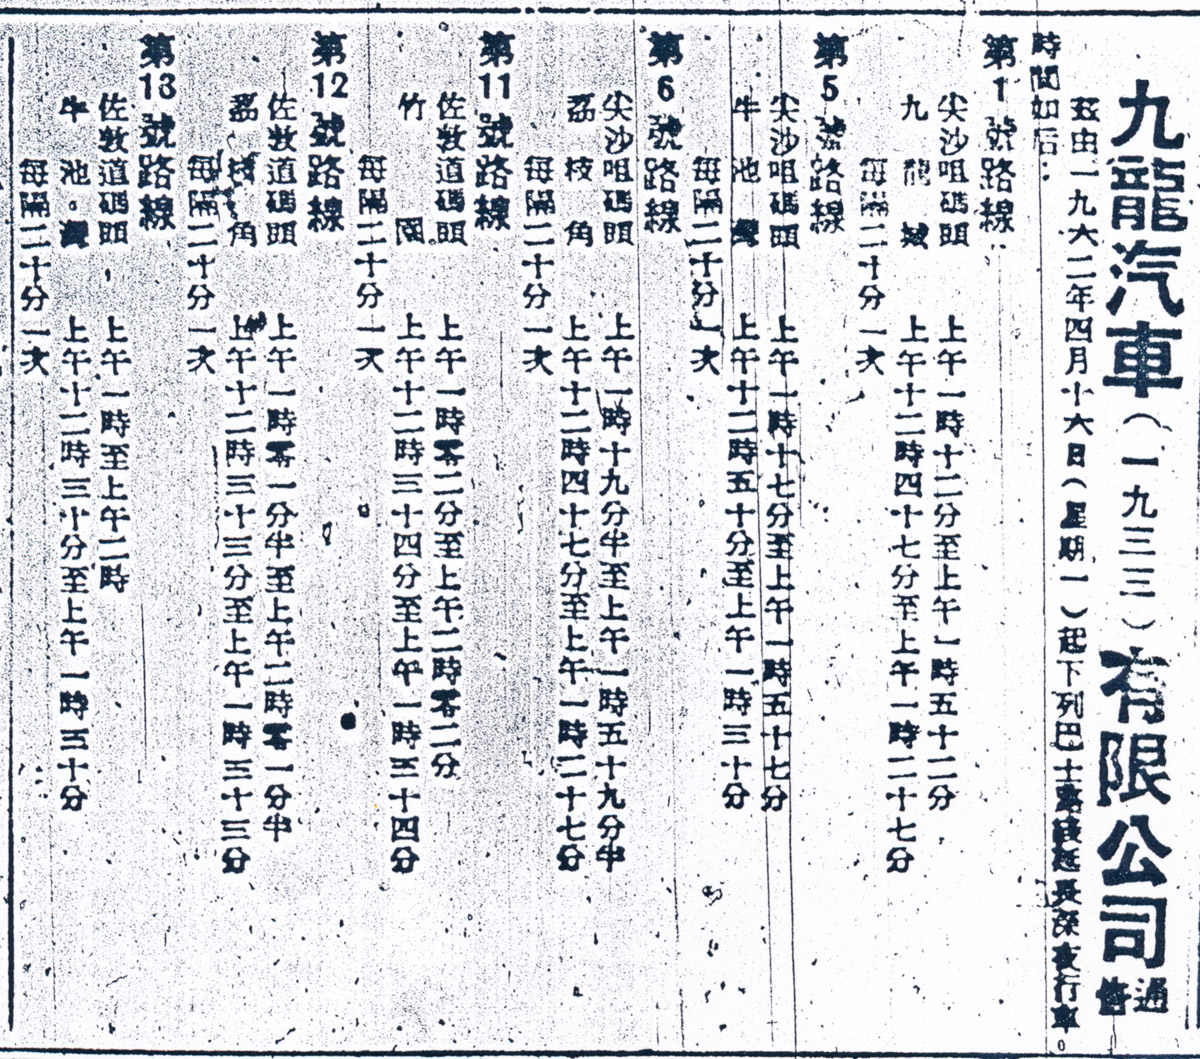 九龍汽車(一九三三)有限公司通告
茲由一九六二年四月十六日(星期一)起下列巴士路線延長深夜行車
時間如后:
第1號路線
尖沙咀碼頭 上午一時十二分至上午一時五十二分
九龍城 上午十二時四十七分至上午一時二十七分
每隔二十分一次
第5號路線
尖沙咀碼頭 上午一時十七分至上午一時五十七分
牛池灣 上午十二時五十分至上午一時三十分
每隔二十分一次
第6號路線
尖沙咀碼頭 上午一時十九分半至上午一時五十九分半
荔枝角 上午十二時四十七分至上午一時二十七分
每隔二十分一次
第11號路線
佐敦道碼頭 上午一時零二分至上午二時零二分
竹園 上午十二時三十四分至上午一時三十四分
每隔二十分一次
第12號路線
佐敦道碼頭 上午一時零一分半至上午二時零一分半
荔枝角 上午十二時三十三分至上午一時三十三分
每隔二十分一次
第13號路線
佐敦道碼頭 上午一時至上午二時
牛池灣 上午十二時三十分至上午一時三十分
每隔二十分一次